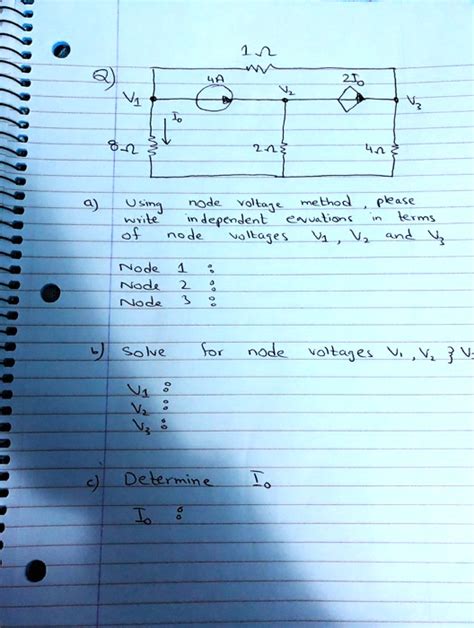 1 Ω
Q)
4A
V₂
2I₀
V₁
I₀
V₃
8Ω
2Ω
4Ω
a) Using node voltage method, please
write independent envuations in terms
of node voltages V₁, V₂ and V₃
Node 1 :
Node 2 :
Node 3 :
b) Solve for node voltages V₁, V₂ } V
V₁ :
V₂ :
V₃ :
c) Determine I₀
I₀ :